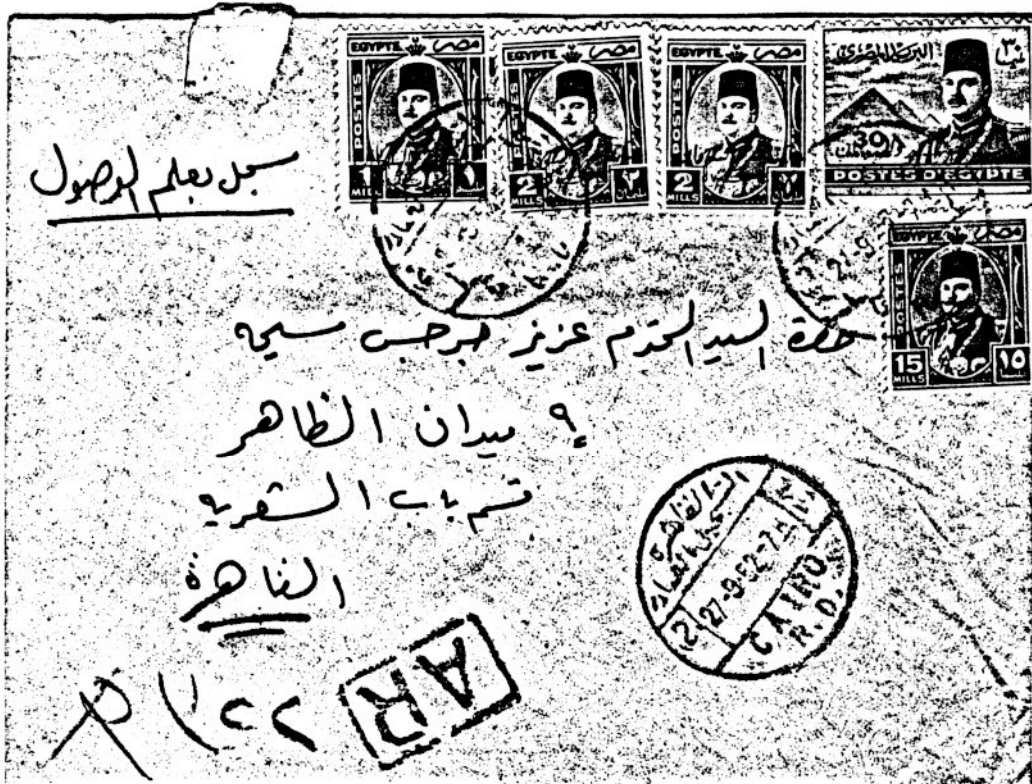 EGYPTE مصر
POSTES
1 MILLS ١
EGYPTE مصر
POSTES
2 MILLS ٢
EGYPTE مصر
POSTES
2 MILLS ٢
٣٠
30
POSTES D'EGYPTE
EGYPTE مصر
POSTES
15 MILLS ١٥
مسجل بعلم الوصول
حضرة السيد المحترم عزيز جرجس مسيحه
٩ ميدان الظاهر
قسم باب الشعرية
القاهرة
القاهرة
27-9-52-7
CAIRO
R.D.
AR